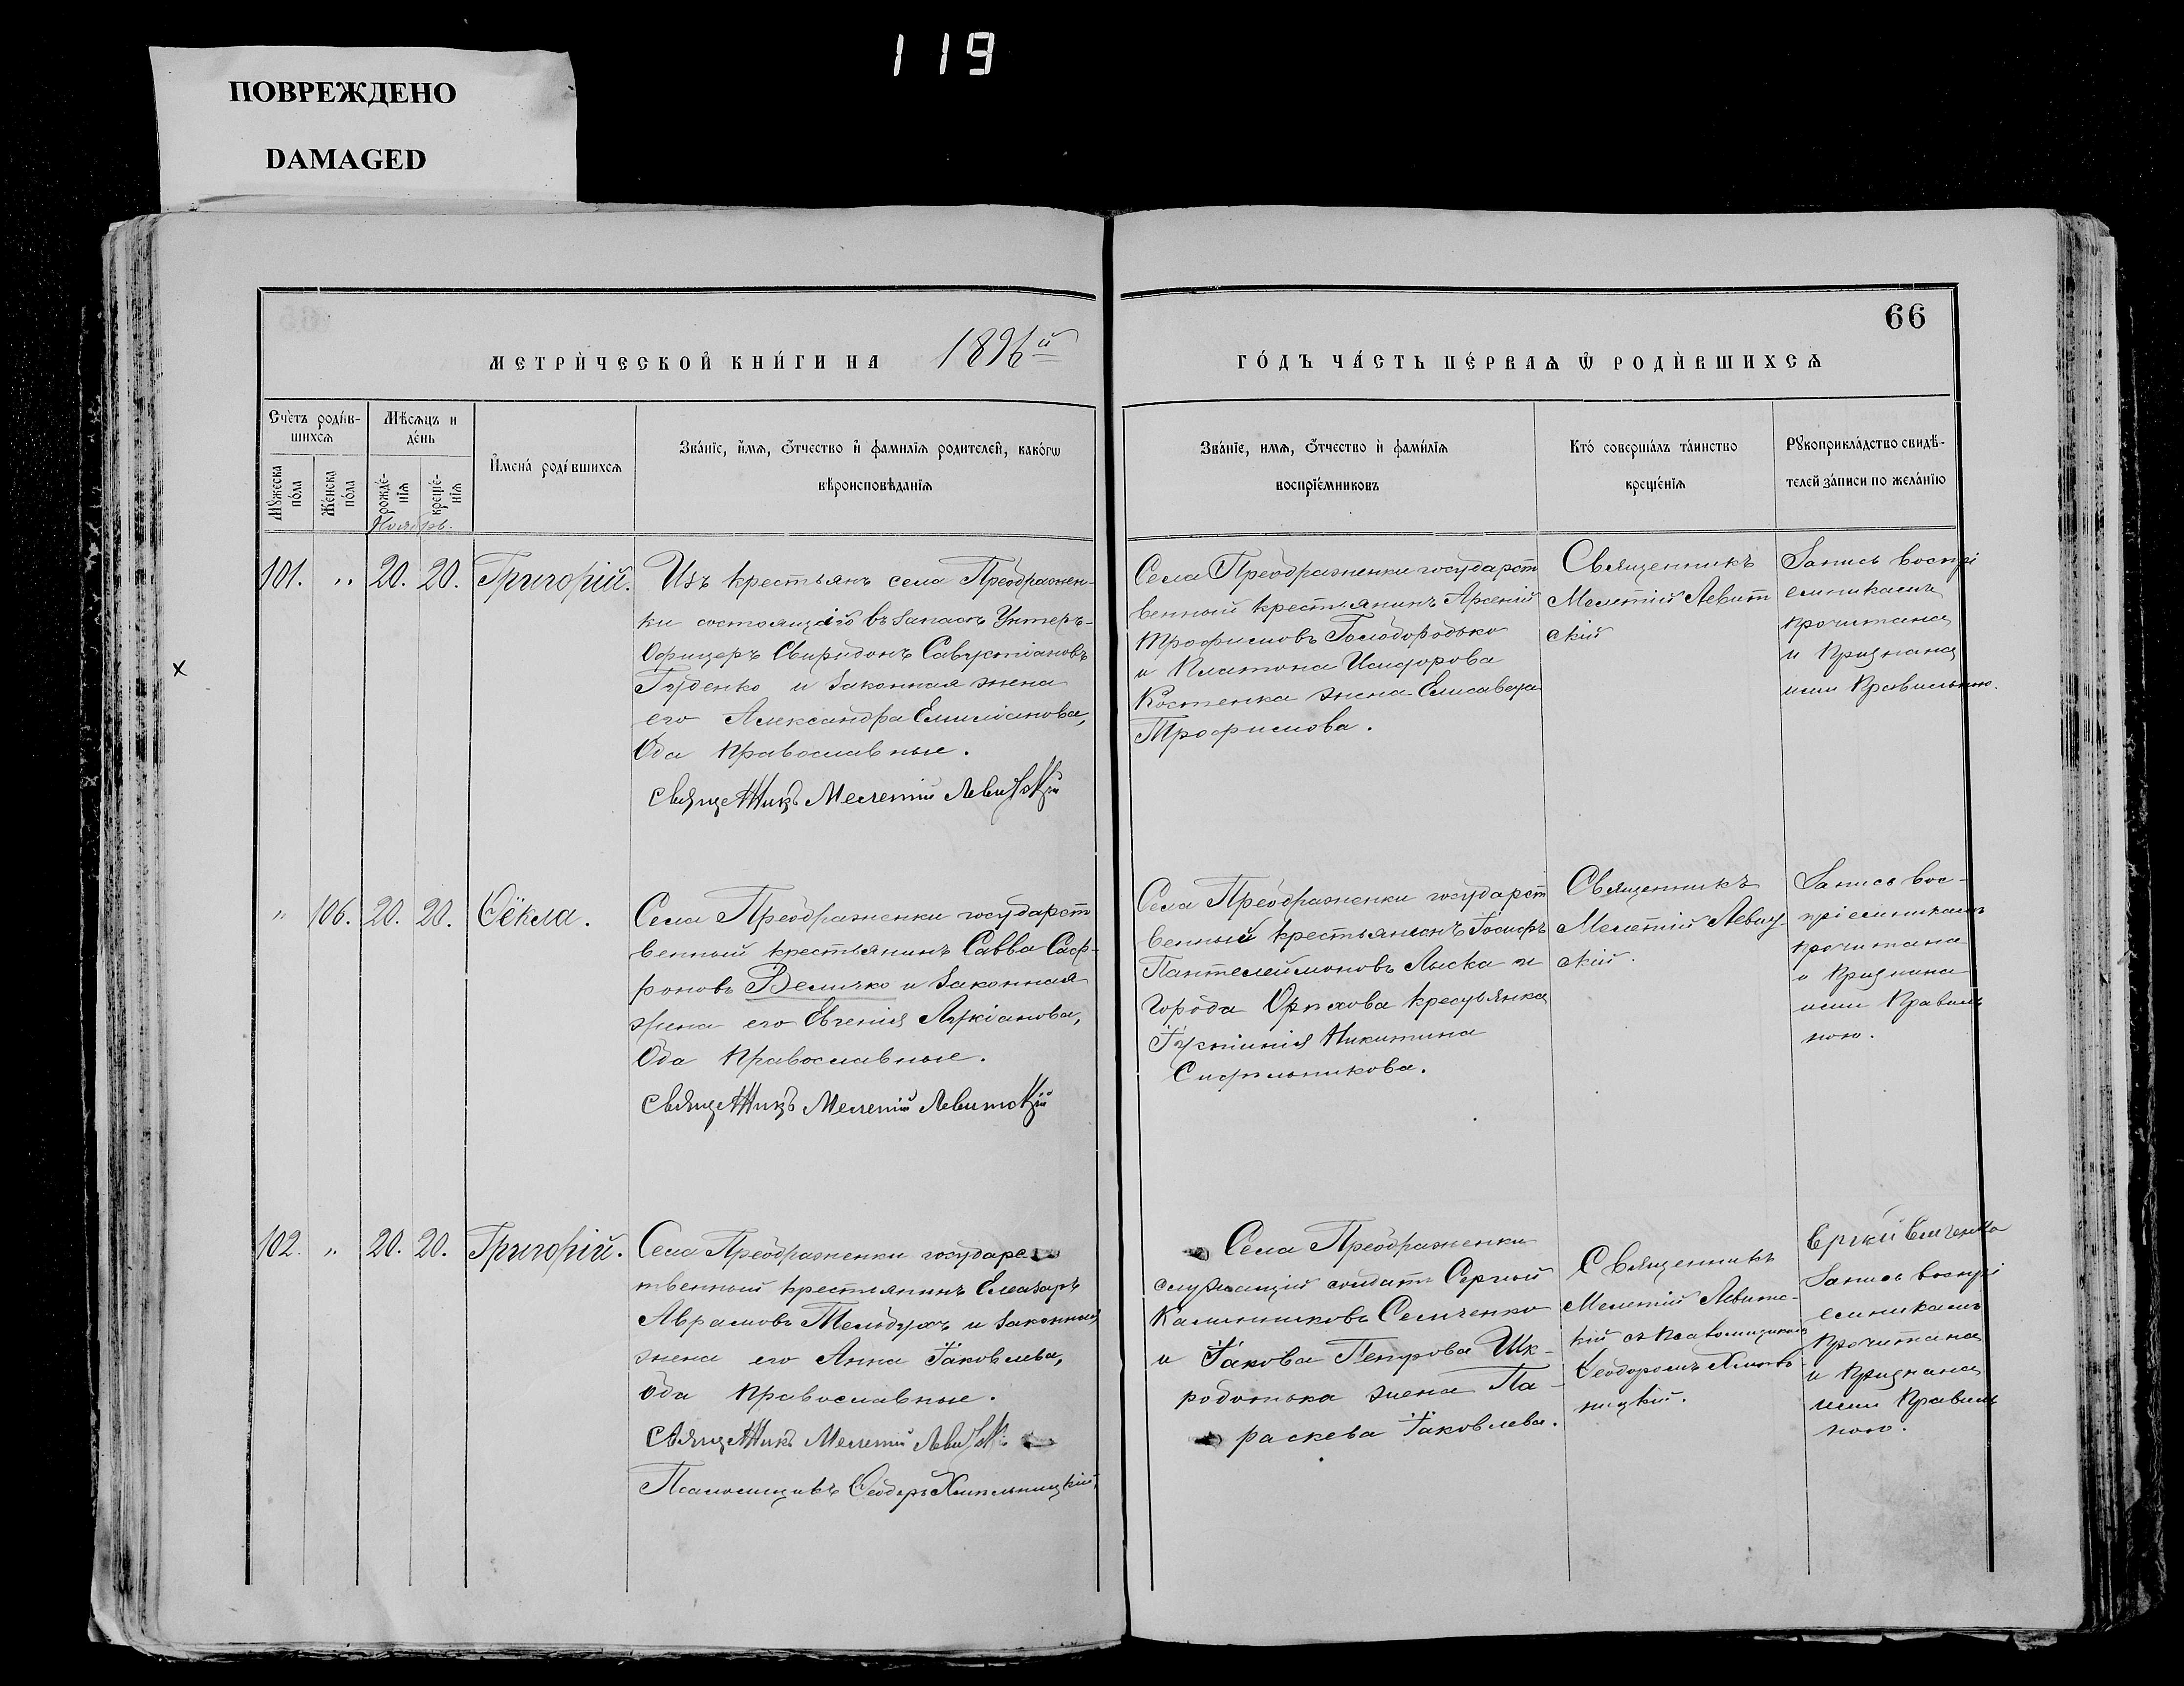 119
ПОВРЕЖДЕНО
DAMAGED
66
МЕТРИ́ЧЕСКОЙ КНИ́ГИ НА 1896й
ГО́ДЪ ЧА́СТЬ ПЕ́РВАѦ Ѡ РОДИ́ВШИХСѦ
Счетъ роди́в-
шихсѧ
Мѣсѧцъ и
де́нь
Мꙋжеска
по́ла
Же́нска
по́ла
рожде́-
нїѧ
креще́-
нїѧ
И҆мена́ роди́вшихсѧ
Зва́нїе, и҆́мѧ, ѻ҆́тчество и҆ фамилїѧ родителей, како́гѡ
вѣроисповѣданїѧ
Зва́нїе, имѧ, ѻ҆́тчество и҆ фами́лїѧ
воспрїе́мниковъ
Кто́ соверша́лъ та́инство
креще́нїѧ
Рꙋкоприкла́дство свидѣ́-
телей за́писи по жела́нїю
Ноябрь.
101. „ 20. 20. Григорій.
Изъ крестьянъ села Преображен-
ки состоящій въ запасѣ Унтеръ-
Офицеръ Свиридонъ Савустіановъ
Гуденко и законная жена
его Александра Емиліанова,
Оба православные.
Священникъ Мелетій Левитскій
Села Преображенки государст
венный крестьянинъ Арсеній
Трофимовъ Голобородько
и Платона Исидорова
Костенка жена Елисавета
Трофимова.
Священникъ
Мелетій Левит
скій
Запись воспрі
емникамъ
прочитана
и признана
ими правильною.
„ 106. 20. 20. Ѳёкла.
Села Преображенки государст
венный крестьянинъ Савва Саф-
роновъ Величко и законная
жена его Евгенія Лукіанова,
Оба православные.
Священникъ Мелетій Левитскій
Села Преображенки государст
венный крестьянинъ Іосифъ
Пантелеймоновъ Лыска и
города Орѣхова крестьянка
Іустинія Никитина
Священникъ
Мелетій Левит-
скій.
Запись вос-
пріемникамъ
прочитана
и признана
ими правиль
ною.
102. „ 20. 20. Григорій.
Села Преображенки государс
твенный крестьянинъ Елеазаръ
Аврамовъ и законная
жена его Анна Іаковлева,
Оба православные.
Священникъ Мелетій Левитскі
Псаломщикъ Ѳеодоръ Хмельницкій,
Села Преображенки
служащій солдатъ Сергѣй
Калинниковъ Семченко
и Іакова Петрова Шк-
жена Па-
раскева Іаковлева.
Священникъ
Мелетій Левитс-
кій съ псаломщикомъ
Ѳеодоромъ Хмель-
ницкій.
Запись воспрі
емникамъ
прочитана
и признана
ими правиль
ною.